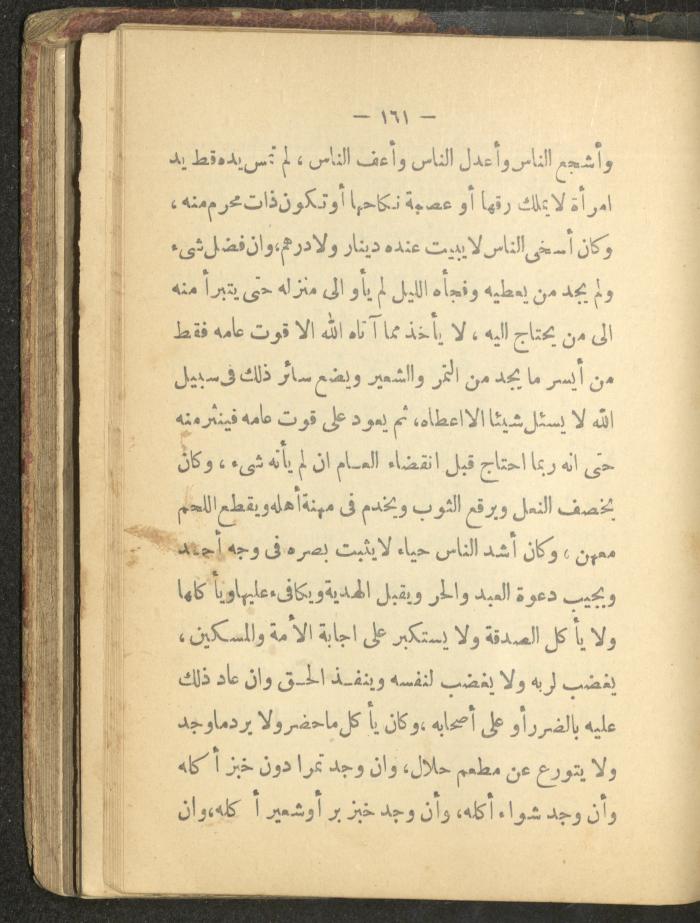 — ١٦١ —
وأشجع الناس وأعدل الناس وأعف الناس ، لم تمس يده قط يد
امرأة لا يملك رقها أو عصمة نكاحها أو تكون ذات محرم منه ،
وكان أسخى الناس لا يبيت عنده دينار ولا درهم، وان فضل شىء
ولم يجد من يعطيه وفجأه الليل لم يأو الى منزله حتى يتبرأ منه
الى من يحتاج اليه ، لا يأخذ مما آتاه الله الا قوت عامه فقط
من أيسر ما يجد من التمر والشعير ويضع سائر ذلك فى سبيل
الله لا يسئل شيئا الا اعطاه، ثم يعود على قوت عامه فينثر منه
حتى انه ربما احتاج قبل انقضاء العام ان لم يأته شىء ، وكان
يخصف النعل ويرقع الثوب ويخدم فى مهنة أهله ويقطع اللحم
معهن ، وكان أشد الناس حياء لا يثبت بصره فى وجه أحد
ويجيب دعوة العبد والحر ويقبل الهدية ويكافىء عليها ويأكلها
ولا يأكل الصدقة ولا يستكبر على اجابة الأمة والمسكين ،
يغضب لربه ولا يغضب لنفسه وينفذ الحق وان عاد ذلك
عليه بالضرر أو على أصحابه ، وكان يأكل ما حضر ولا يرد ما وجد
ولا يتورع عن مطعم حلال، وان وجد تمرا دون خبز أكله
وأن وجد شواء أكله، وأن وجد خبز بر أو شعير أكله، وان